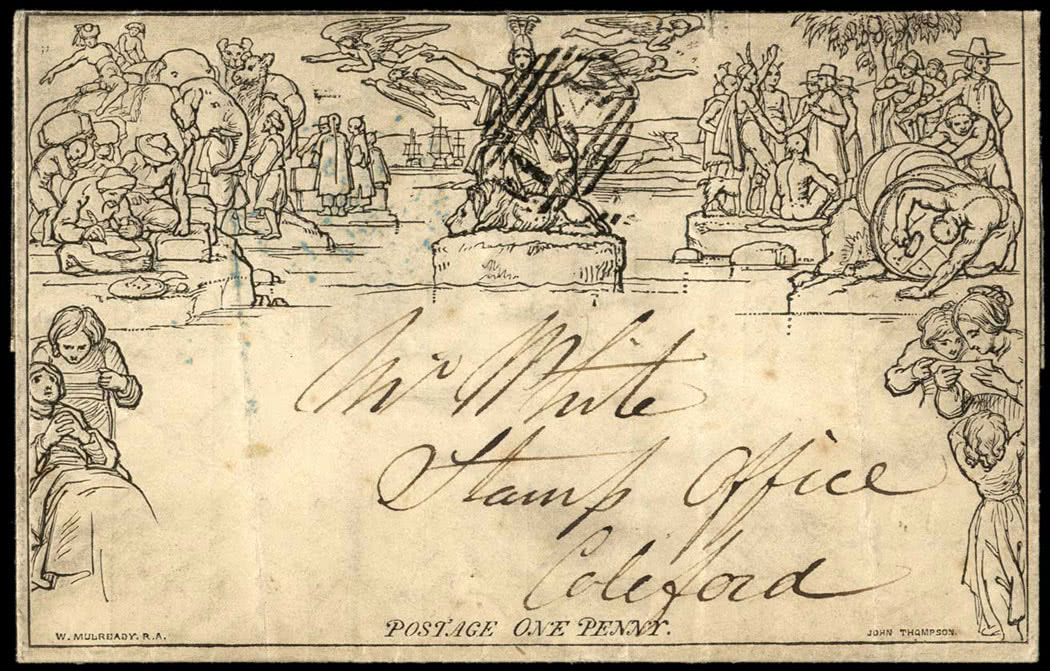 Mr White
Stamp Office
Coleford
POSTAGE ONE PENNY.
W. MULREADY. R.A.
JOHN THOMPSON.